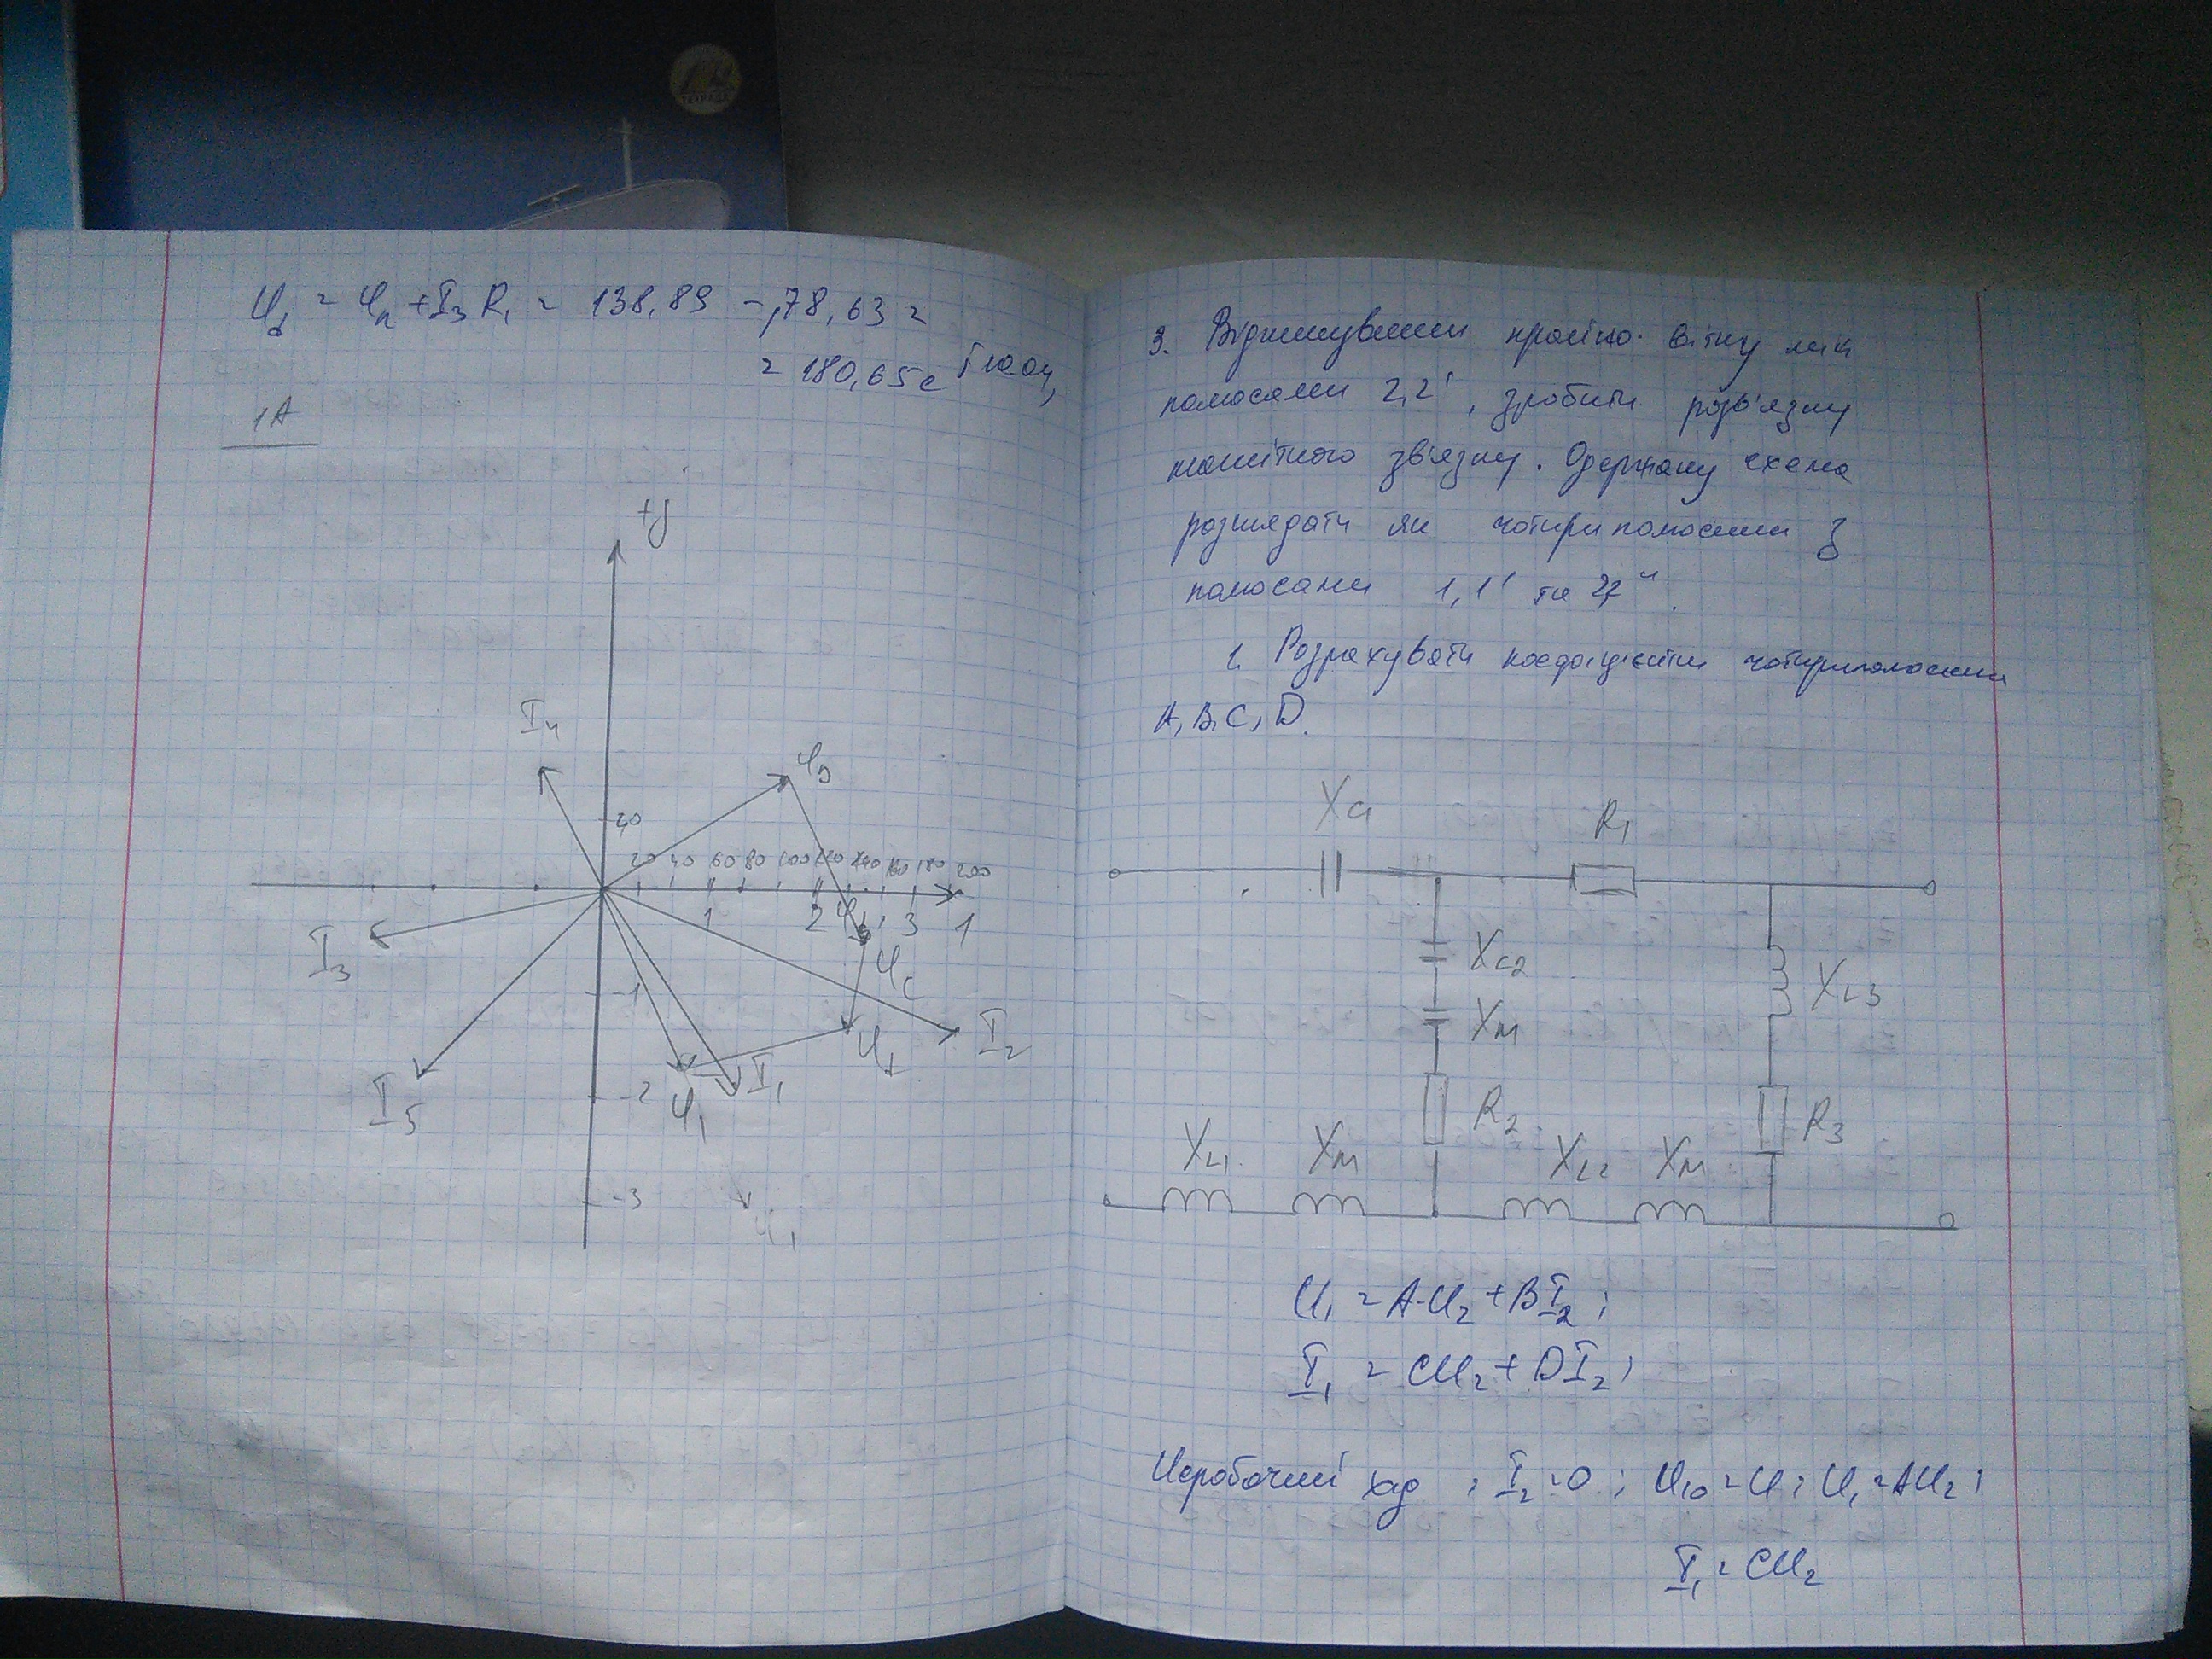 ТЕТРАДЬ
φ = φ + I₃ R₁ = 138,89 - j78,63 =
= 180,65 e
1A
+j
I₄
φ
40
20 40 60 80 100 120 140 160 180 200
1 2 3 1
I₃
φ
φc
-1
I₂
φ
I₅
-2
φ₁
I₁
-3
φ₁
3. Відкинувши крайню вітку між
полюсами 2,2', зробити розв'язку
магнітного зв'язку. Одержану схема
розглядати як чотириполюсник з
полюсами 1,1' та
1. Розрахувати коефіцієнти чотириполюсника
A, B, C, D.
XC1 R₁
XC2
XM
XL3
R₂
R₃
XL1 XM XL2 XM
U₁ = A·U₂ + BI₂;
I₁ = CU₂ + DI₂;
Неробочий хід ; I₂ = 0; U₁₀ = U; U₁ = AU₂;
I₁ = CU₂